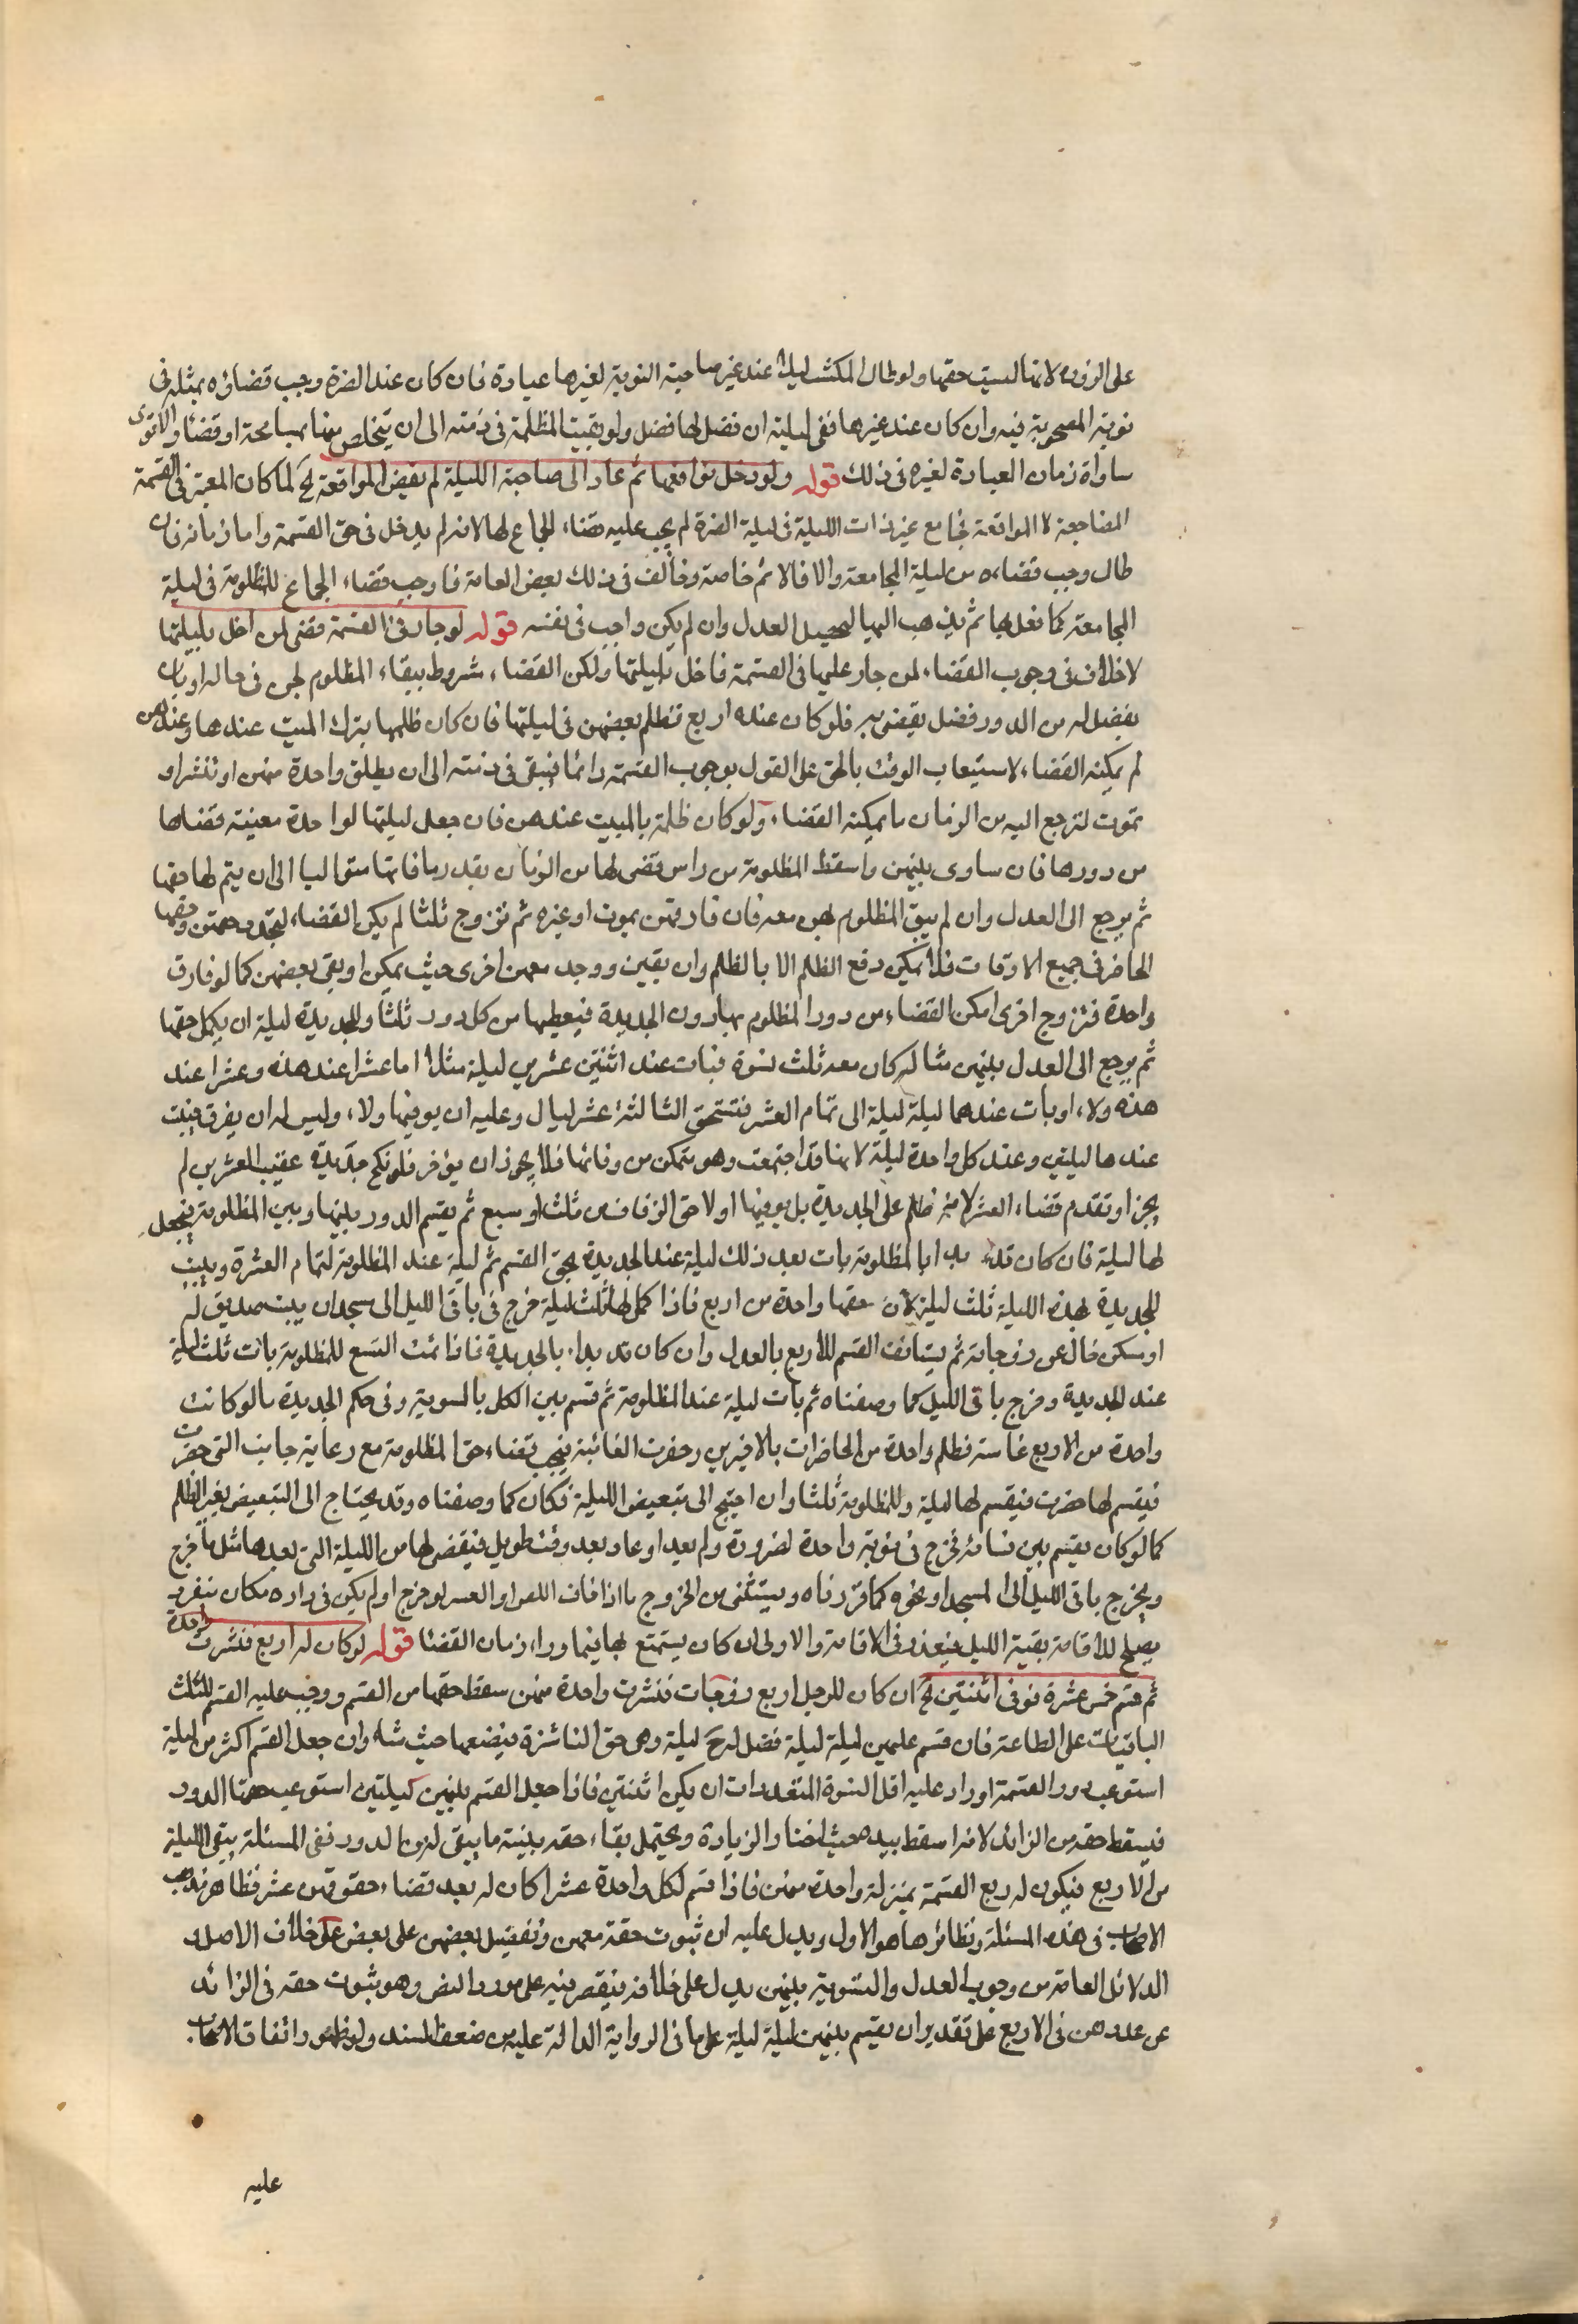 على الزوج لانها ليست حقها ولو طال المكث ليلا عند غير صاحبة النوبة لغيرها عيادة فان كان عند الضرة وجب قضاؤه بمثله فى
نوبة المصحوبة فيه وان كان عند غيرها ففى ليلته ان فضل لها فضل ولو بقيت المظلمة فى ذمته الى ان يتخلص منها بمسامحة او قضاء والاقوى
مساواة زمان العيادة لغيره فى ذلك قوله ولو دخل فواقعها ثم عاد الى صاحبة الليلة لم يقض المواقعة الخ لما كان المعتبر فى القسمة
المضاجعة لا المواقعة فجامع غير ذات الليلة فى ليلة الضرة لم يجب عليه قضاء الجماع لها لانه لم يدخل فى حق القسمة واما زمانه فان
طال وجب قضاءه من ليلة المجامعة والا فالاثم خاصة وخالف فى ذلك بعض العامة فاوجب قضاء الجماع للمظلومة فى ليلة
المجامعة كما فعل بها ثم يذهب اليها ليحصل العدل وان لم يكن واجب فى نفسه قوله لو جار فى القسمة قضى لمن اخل بليلتها
لا خلاف فى وجوب القضاء لمن جار عليها فى القسمة فاخل بليلتها ولكن القضاء مشروط ببقاء المظلوم لهن فى حاله او بان
يفضل له من الدور فضل يقضى به فلو كان عنده اربع فظلم بعضهن فى ليلتها فان كان ظلمها بترك المبيت عندها وعندهن
لم يمكنه القضاء لاستيعاب الوقت بالحق على القول بوجوب القسمة دائما فيبقى فى ذمته الى ان يطلق واحدة منهن او تنشز او
تموت لترجع اليه من الزمان ما يمكنه القضاء ولو كان ظلمه بالمبيت عندهن فان جعل ليلتها لواحدة معينة قضاها
من دورها فان ساوى بينهن واسقط المظلومة من راس قضى لها من الزمان بقدر ما فاتها متواليا الى ان يتم لها حقها
ثم يرجع الى العدل وان لم يبق المظلوم بهن معه فان فارقهن بموت او غيره ثم تزوج ثلثا لم يكن القضاء لتجدد حقهن وحقها
الحاضر فى جميع الاوقات فلا يمكن دفع الظلم الا بالظلم وان بقين ووجد معهن اخرى حيث يمكن او بقى بعضهن كما لو فارق
واحدة فتزوج اخرى امكن القضاء من دور المظلوم بها دون الجديدة فيعطيها من كل دور ثلثا وللجديدة ليلة ان يكمل حقها
ثم يرجع الى العدل بينهن مثاله كان معه ثلث نسوة فبات عند اثنتين عشرين ليلة مثلا اما عشرا عند هذه وعشرا عند
هذه ولاء او بات عندهما ليلة ليلة الى تمام العشر فتستحق الثالثة عشر ليال وعليه ان يوفيها ولاء وليس له ان يفرق فيبت
عندها ليلتين وعند كل واحدة ليلة لانها قد اجتمعت وهو متمكن من وفائها فلا يجوز ان يؤخر فلو نكح جديدة عقيب العشرين لم
يجز او تقدم قضاء العشر لانه ظلم على الجديدة بل يوفيها اولا حق الزفاف من ثلث او سبع ثم يقسم الدور بينها وبين المظلومة فيجعل
لها ليلة فان كان قد بدا بالمظلومة بات بعد ذلك ليلة عند الجديدة بحق القسم ثم ليلة عند المظلومة لتمام العشرة ويبيت
للجديدة بهذه الليلة ثلث ليلة لان حقها واحدة من اربع فاذا كمل لها ثلث ليلة خرج فى باقى الليل الى مسجد او بيت صديق له
او مسكن خال عن زوجاته ثم يستانف القسم للاربع بالعدل وان كان قد بداء بالجديدة فاذا تمت التسع للمظلومة بات ثلث ليلة
عند الجديدة وخرج باقى الليل كما وصفناه ثم بات ليلة عند المظلومة ثم قسم بين الكل بالسوية وفى حكم الجديدة ما لو كانت
واحدة من الاربع غائبة فظلم واحدة من الحاضرات بالاخيرين وحضرت الغائبة فيجب قضاء حق المظلومة مع رعاية جانب التى حضرت
فيقسم لها حضرت فيقسم لها ليلة وللمظلومة ثلثا وان احتيج الى تبعيض الليلة فكان كما وصفناه وقد يحتاج الى التبعيض بغير الظلم
كما لو كان يقسم بين نسائه فخرج فى نوبة واحدة لضرورة ولم يعد او عاد بعد وقت طويل فيقضى لها من الليلة التى بعدها مثل ما خرج
ويخرج باقى الليل الى المسجد او نحوه كما قررناه ويستثنى من الخروج ما اذا خاف اللص او العسس لو خرج او لم يكن فى داره مكان منفرد
يصلح للاقامة بقية الليل فيعذر فى الاقامة والاولى ان كان يستمتع بها فيما وراء زمان القضاء قوله لو كان له اربع فنشزت واحدة
ثم قسم خمس عشرة فوفى اثنتين الخ ان كان للرجل اربع زوجات فنشزت واحدة منهن سقط حقها من القسم ووجب عليه القسم للثلث
الباقيات على الطاعة فان قسم عليهن ليلة ليلة فضل له ح ليلة وهى حق الناشزة فيضعها حيث شاء وان جعل القسم اكثر من ليلة
استوعب دور القسمة او زاد عليه اقل النسوة المتعددات ان يكن اثنتين فاذا جعل القسم بينهن ليلتين استوعب حقها الدور
فيسقط حقه من الزائد لانه اسقط بيده حيث اختار الزيادة ويحتمل بقاء حقه بنسبة ما يبقى له من الدور ففى المسئلة يبقى الليلة
من الاربع فيكون له ربع القسمة بمنزلة واحدة منهن فاذا قسم لكل واحدة عشرا كان له بعد قضاء حقوقهن عشر فظاهر مذهب
الاصحاب فى هذه المسئلة ونظائرها هو الاول ويدل عليه ان ثبوت حقه معهن وتفضيل بعضهن على بعض على خلاف الاصل و
الدلائل العامة من وجوب العدل والتسوية بينهن يدل على خلافه فيقصر فيه على مورد النص وهو ثبوت حقه فى الزائد
عن عددهن فى الاربع على تقدير ان يقسم بينهن ليلة ليلة على ما فى الرواية الدالة عليه من ضعف السند ولو ظهور اتفاق الاصحاب
عليه